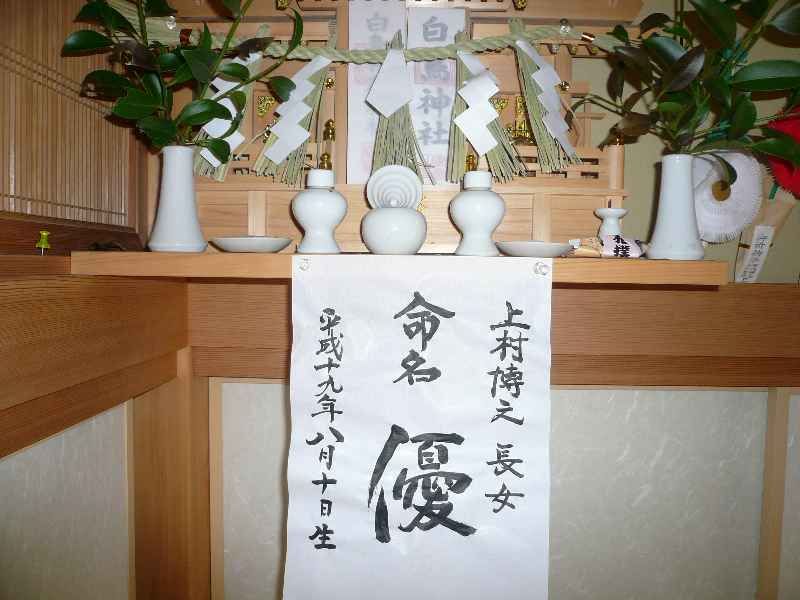 上村博之 長女
命名
優
平成十九年八月十日生
白鳥神社